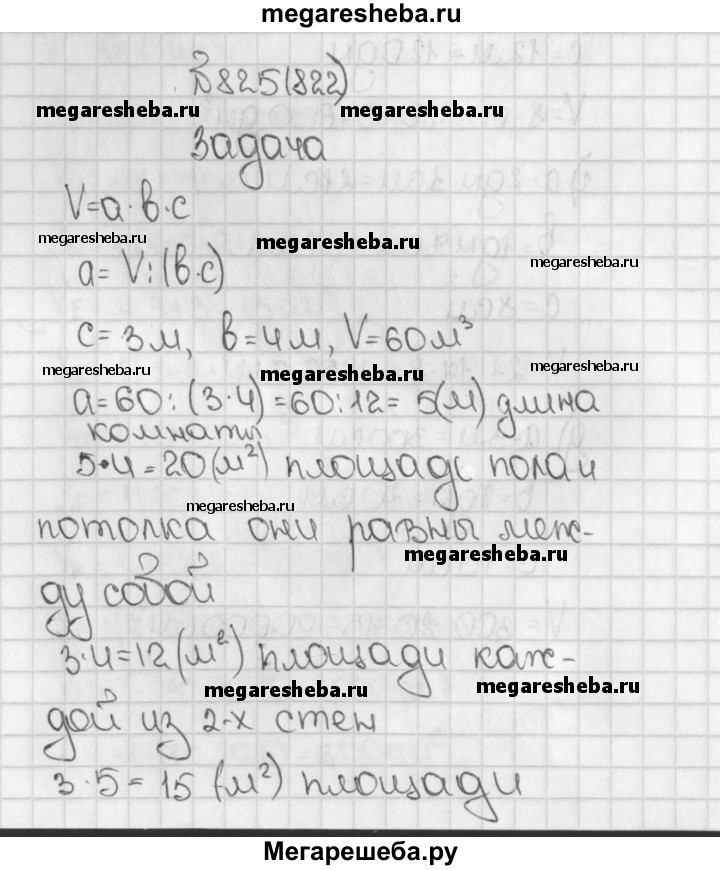 megaresheba.ru
№825(822)
megaresheba.ru megaresheba.ru
Задача
V=a·b·c
megaresheba.ru megaresheba.ru
a=V:(b·c) megaresheba.ru
c=3м, b=4м, V=60м³
megaresheba.ru megaresheba.ru megaresheba.ru
a=60:(3·4)=60:12=5(м) длина
комнаты
5·4=20(м²) площадь пола и
megaresheba.ru
потолка они равны меж-
megaresheba.ru
ду собой
3·4=12(м²) площади каж-
megaresheba.ru megaresheba.ru
дой из 2-х стен
3·5=15(м²) площади
Мегарешеба.ру